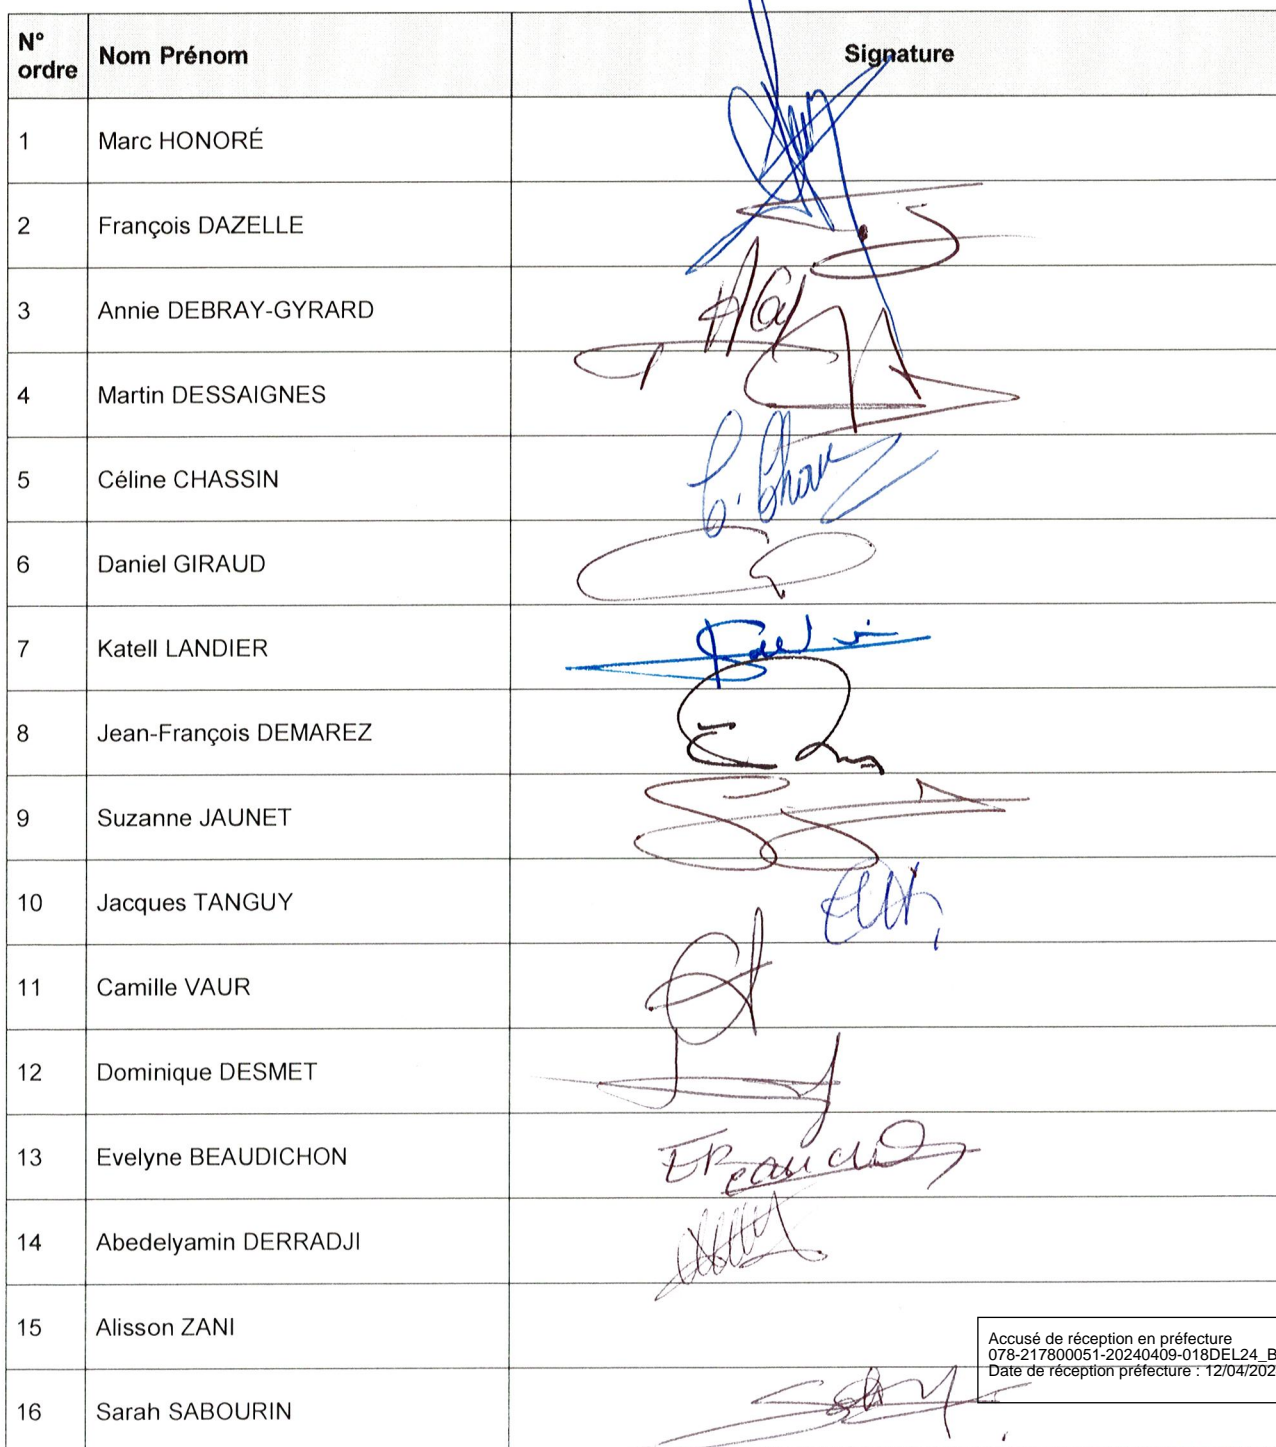 N° ordre Nom Prénom Signature
1 Marc HONORÉ
2 François DAZELLE
3 Annie DEBRAY-GYRARD
4 Martin DESSAIGNES
5 Céline CHASSIN
6 Daniel GIRAUD
7 Katell LANDIER
8 Jean-François DEMAREZ
9 Suzanne JAUNET
10 Jacques TANGUY
11 Camille VAUR
12 Dominique DESMET
13 Evelyne BEAUDICHON
14 Abedelyamin DERRADJI
15 Alisson ZANI
Accusé de réception en préfecture
078-217800051-20240409-018DEL24_B
Date de réception préfecture : 12/04/202
16 Sarah SABOURIN